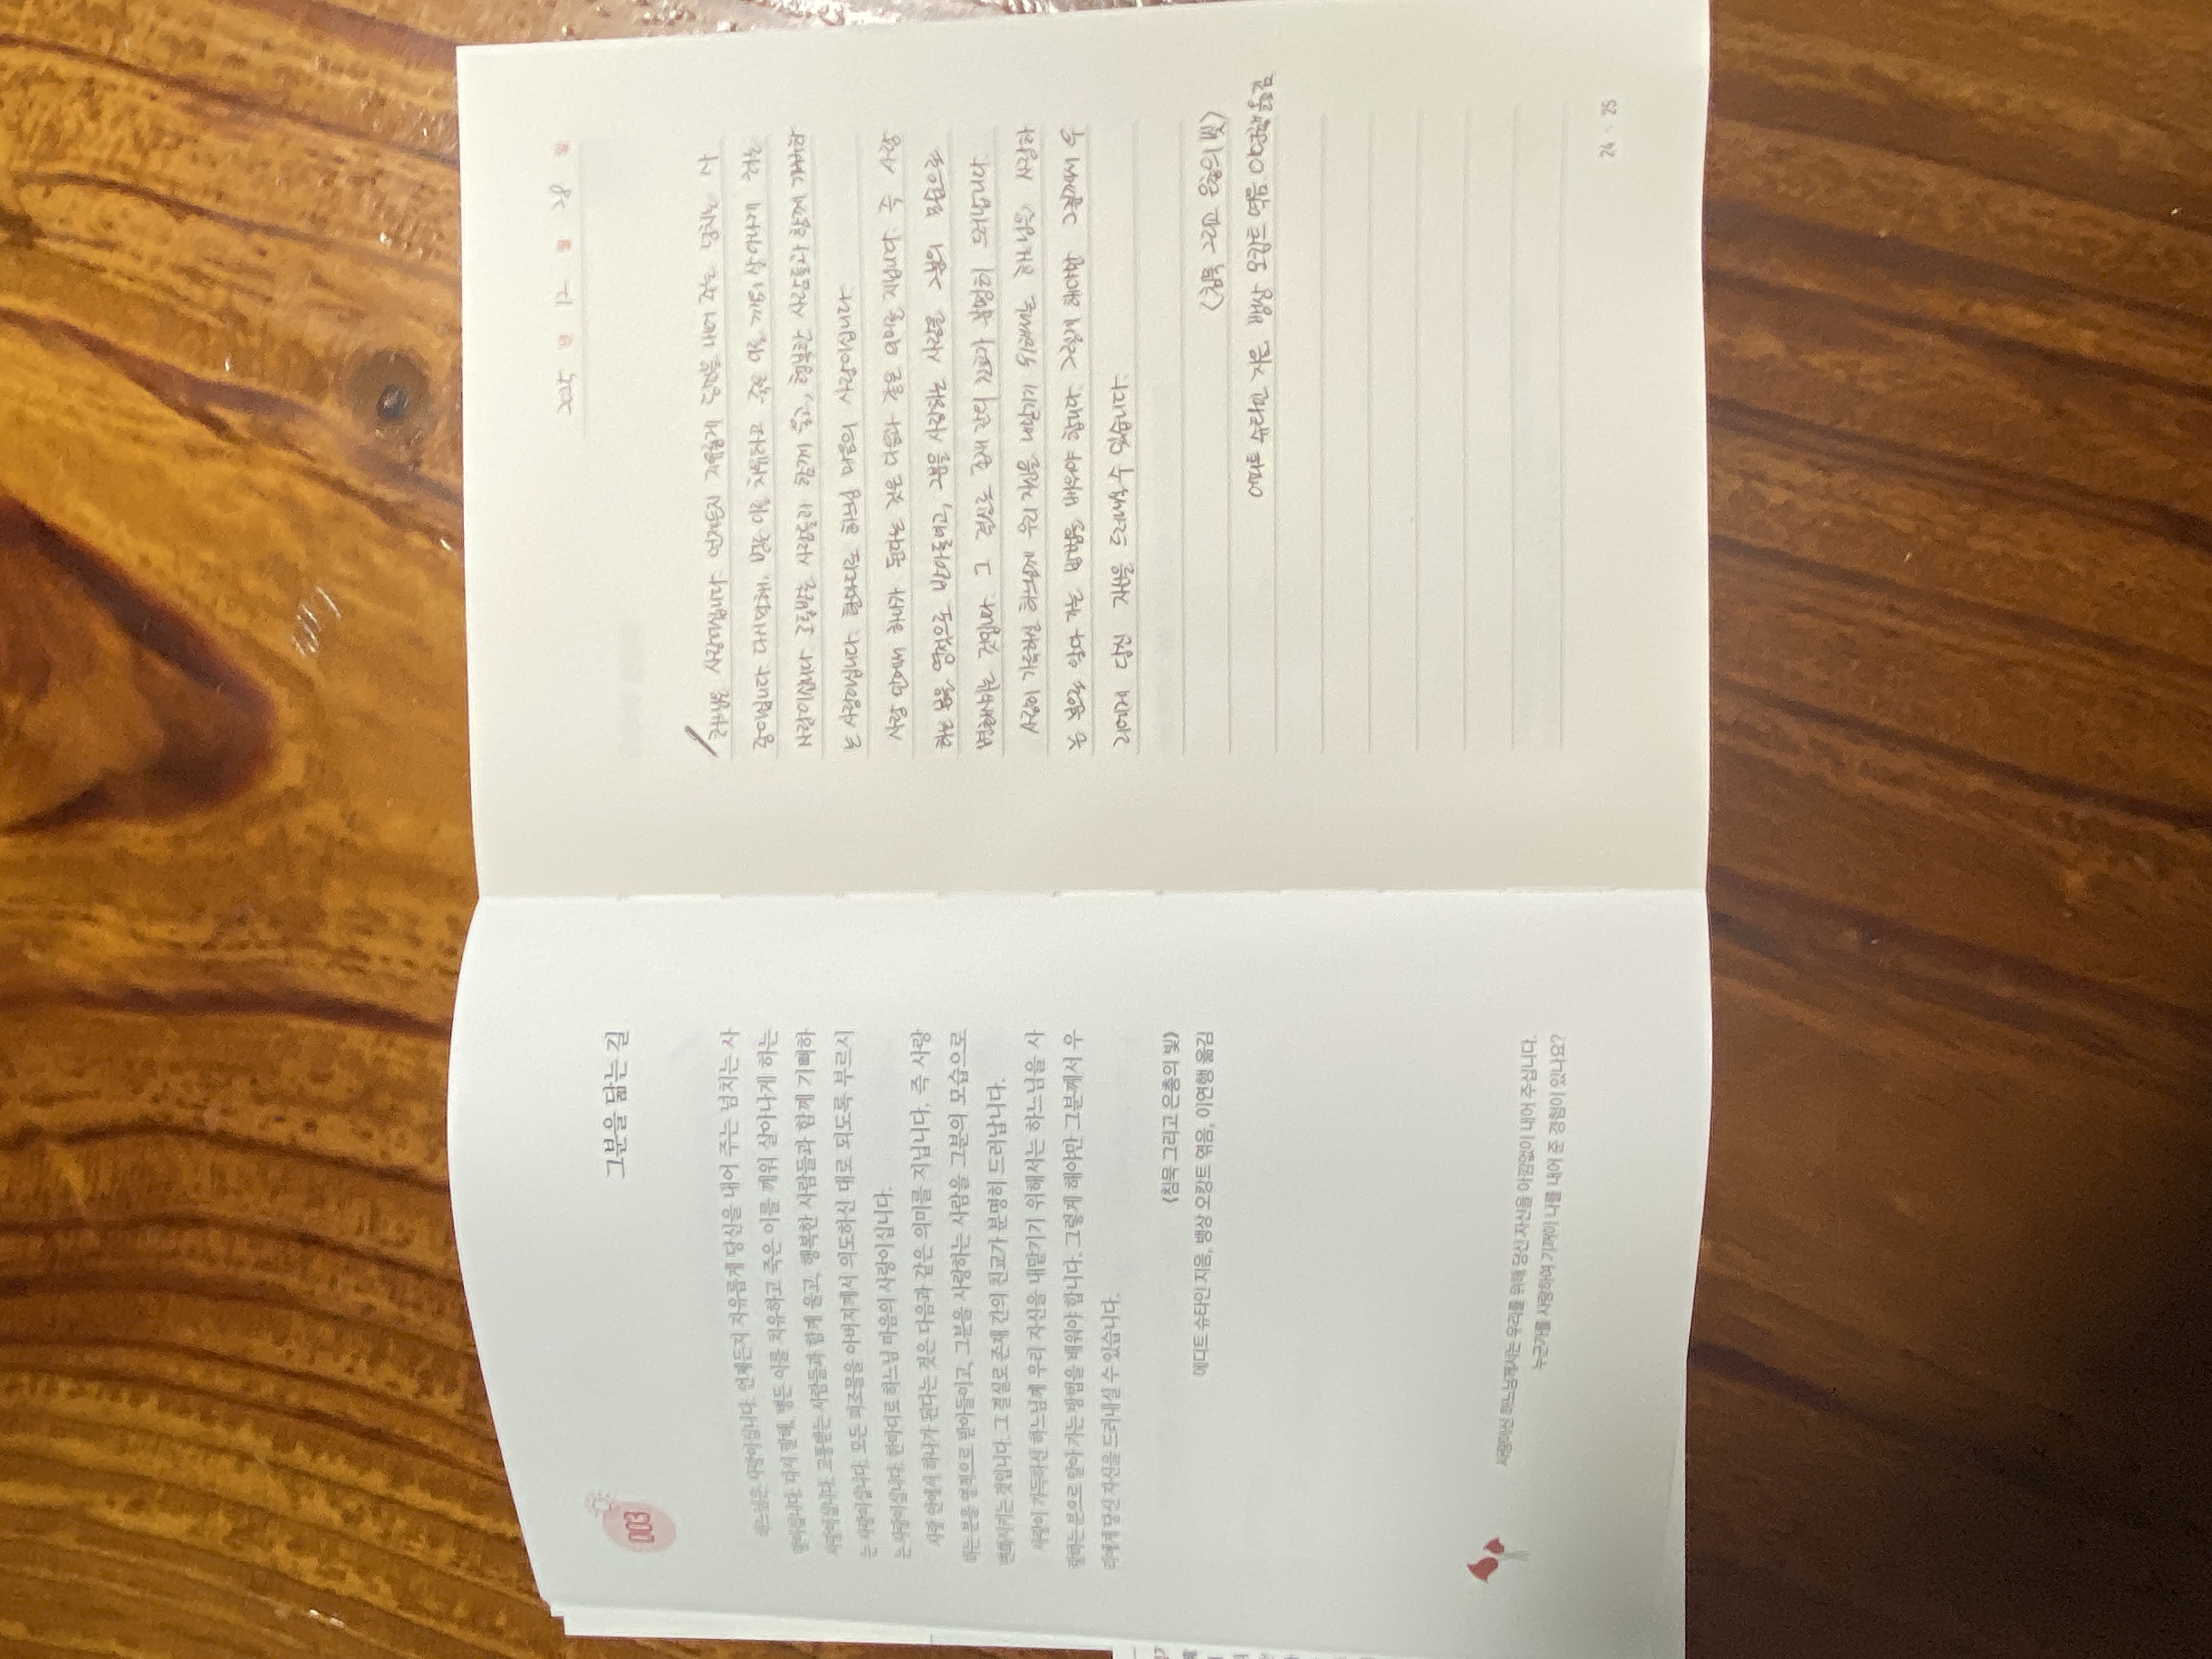 003
그분을 닮는 길
하느님은 사랑이십니다. 언제든지 자유롭게 당신을 내어 주는 넘치는 사
랑이십니다. 다시 말해, 병든 이를 치유하고 죽은 이를 깨워 살아나게 하는
사랑이십니다. 고통받는 사람들과 함께 울고, 행복한 사람들과 함께 기뻐하
는 사랑이십니다. 모든 피조물을 아버지께서 의도하신 대로 되도록 부르시
는 사랑이십니다. 한마디로 하느님 마음의 사랑이십니다.
사랑 안에서 하나가 된다는 것은 다음과 같은 의미를 지닙니다. 즉 사랑
하는 분을 영적으로 받아들이고, 그분을 사랑하는 사람을 그분의 모습으로
변화시키는 것입니다. 그 결실로 존재 간의 친교가 분명히 드러납니다.
사랑이 가득하신 하느님께 우리 자신을 내맡기기 위해서는 하느님을 사
랑하는 분으로 알아 가는 방법을 배워야 합니다. 그렇게 해야만 그분께서 우
리에게 당신 자신을 드러내실 수 있습니다.
《침묵 그리고 은총의 빛》
에디트 슈타인 지음, 뱅상 오캉트 엮음, 이연행 옮김
사랑이신 하느님께서는 우리를 위해 당신 자신을 아낌없이 내어 주십니다.
누군가를 사랑하여 기꺼이 나를 내어 준 경험이 있나요?
하느님은 사랑이십니다. 언제든지 자유롭게 당신을 내어 주는 넘치는 사
랑이십니다. 다시 말해, 병든 이를 치유하고 죽은 이를 깨워 살아나게 하는
사랑이십니다. 고통받는 사람들과 함께 울고, 행복한 사람들과 함께 기뻐하
는 사랑이십니다. 한마디로 하느님 마음의 사랑이십니다.
사랑 안에서 하나가 된다는 것은 다음과 같은 의미를 지닙니다. 즉 사랑
하는 분을 영적으로 받아들이고, 그분을 사랑하는 사람을 그분의 모습으로
변화시키는 것입니다. 그 결실로 존재 간의 친교가 분명히 드러납니다.
사랑이 가득하신 하느님께 우리 자신을 내맡기기 위해서는 하느님을 사랑하
는 분으로 알아 가는 방법을 배워야 합니다. 그렇게 해야만 그분께서 우
리에게 당신 자신을 드러내실 수 있습니다.
《침묵 그리고 은총의 빛》
에디트 슈타인 지음, 뱅상 오캉트 엮음, 이연행 옮김
24 · 25